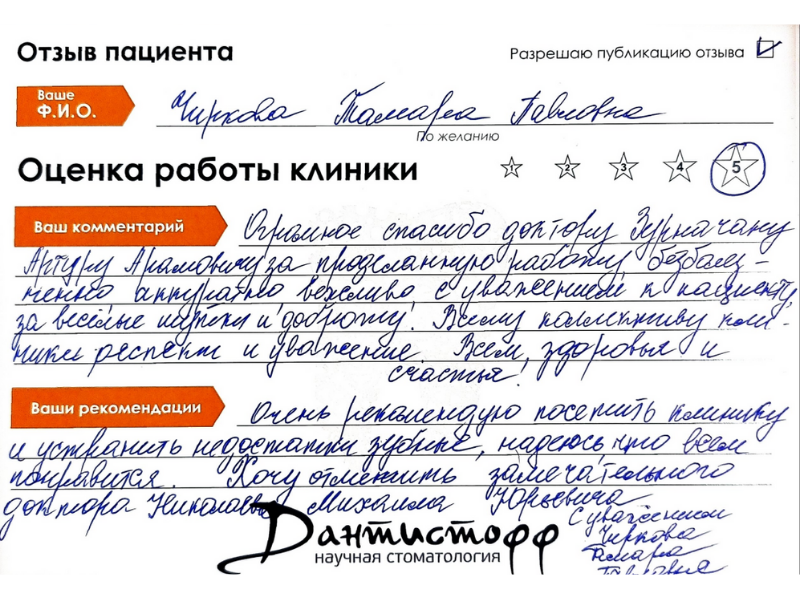 Отзыв пациента
Разрешаю публикацию отзыва
Ваше
Ф.И.О.
Чиркова Тамара Павловна
По желанию
Оценка работы клиники
1 2 3 4 5
Ваш комментарий
Огромное спасибо доктору Зурначану
Артуру Арамовичу за проделанную работу, безболез-
ненно аккуратно вежливо, с уважением к пациенту,
за весёлые шутки и доброту! Всему коллективу кли-
ники респект и уважение. Всем, здоровья и
счастья!
Ваши рекомендации
Очень рекомендую посетить клинику
и устранить недостатки зубные, надеюсь, что всем
понравится. Хочу отметить замечательного
доктора Николаева Михаила Юрьевича
С уважением
Чиркова
Тамара
Павловна
Дантистофф
научная стоматология